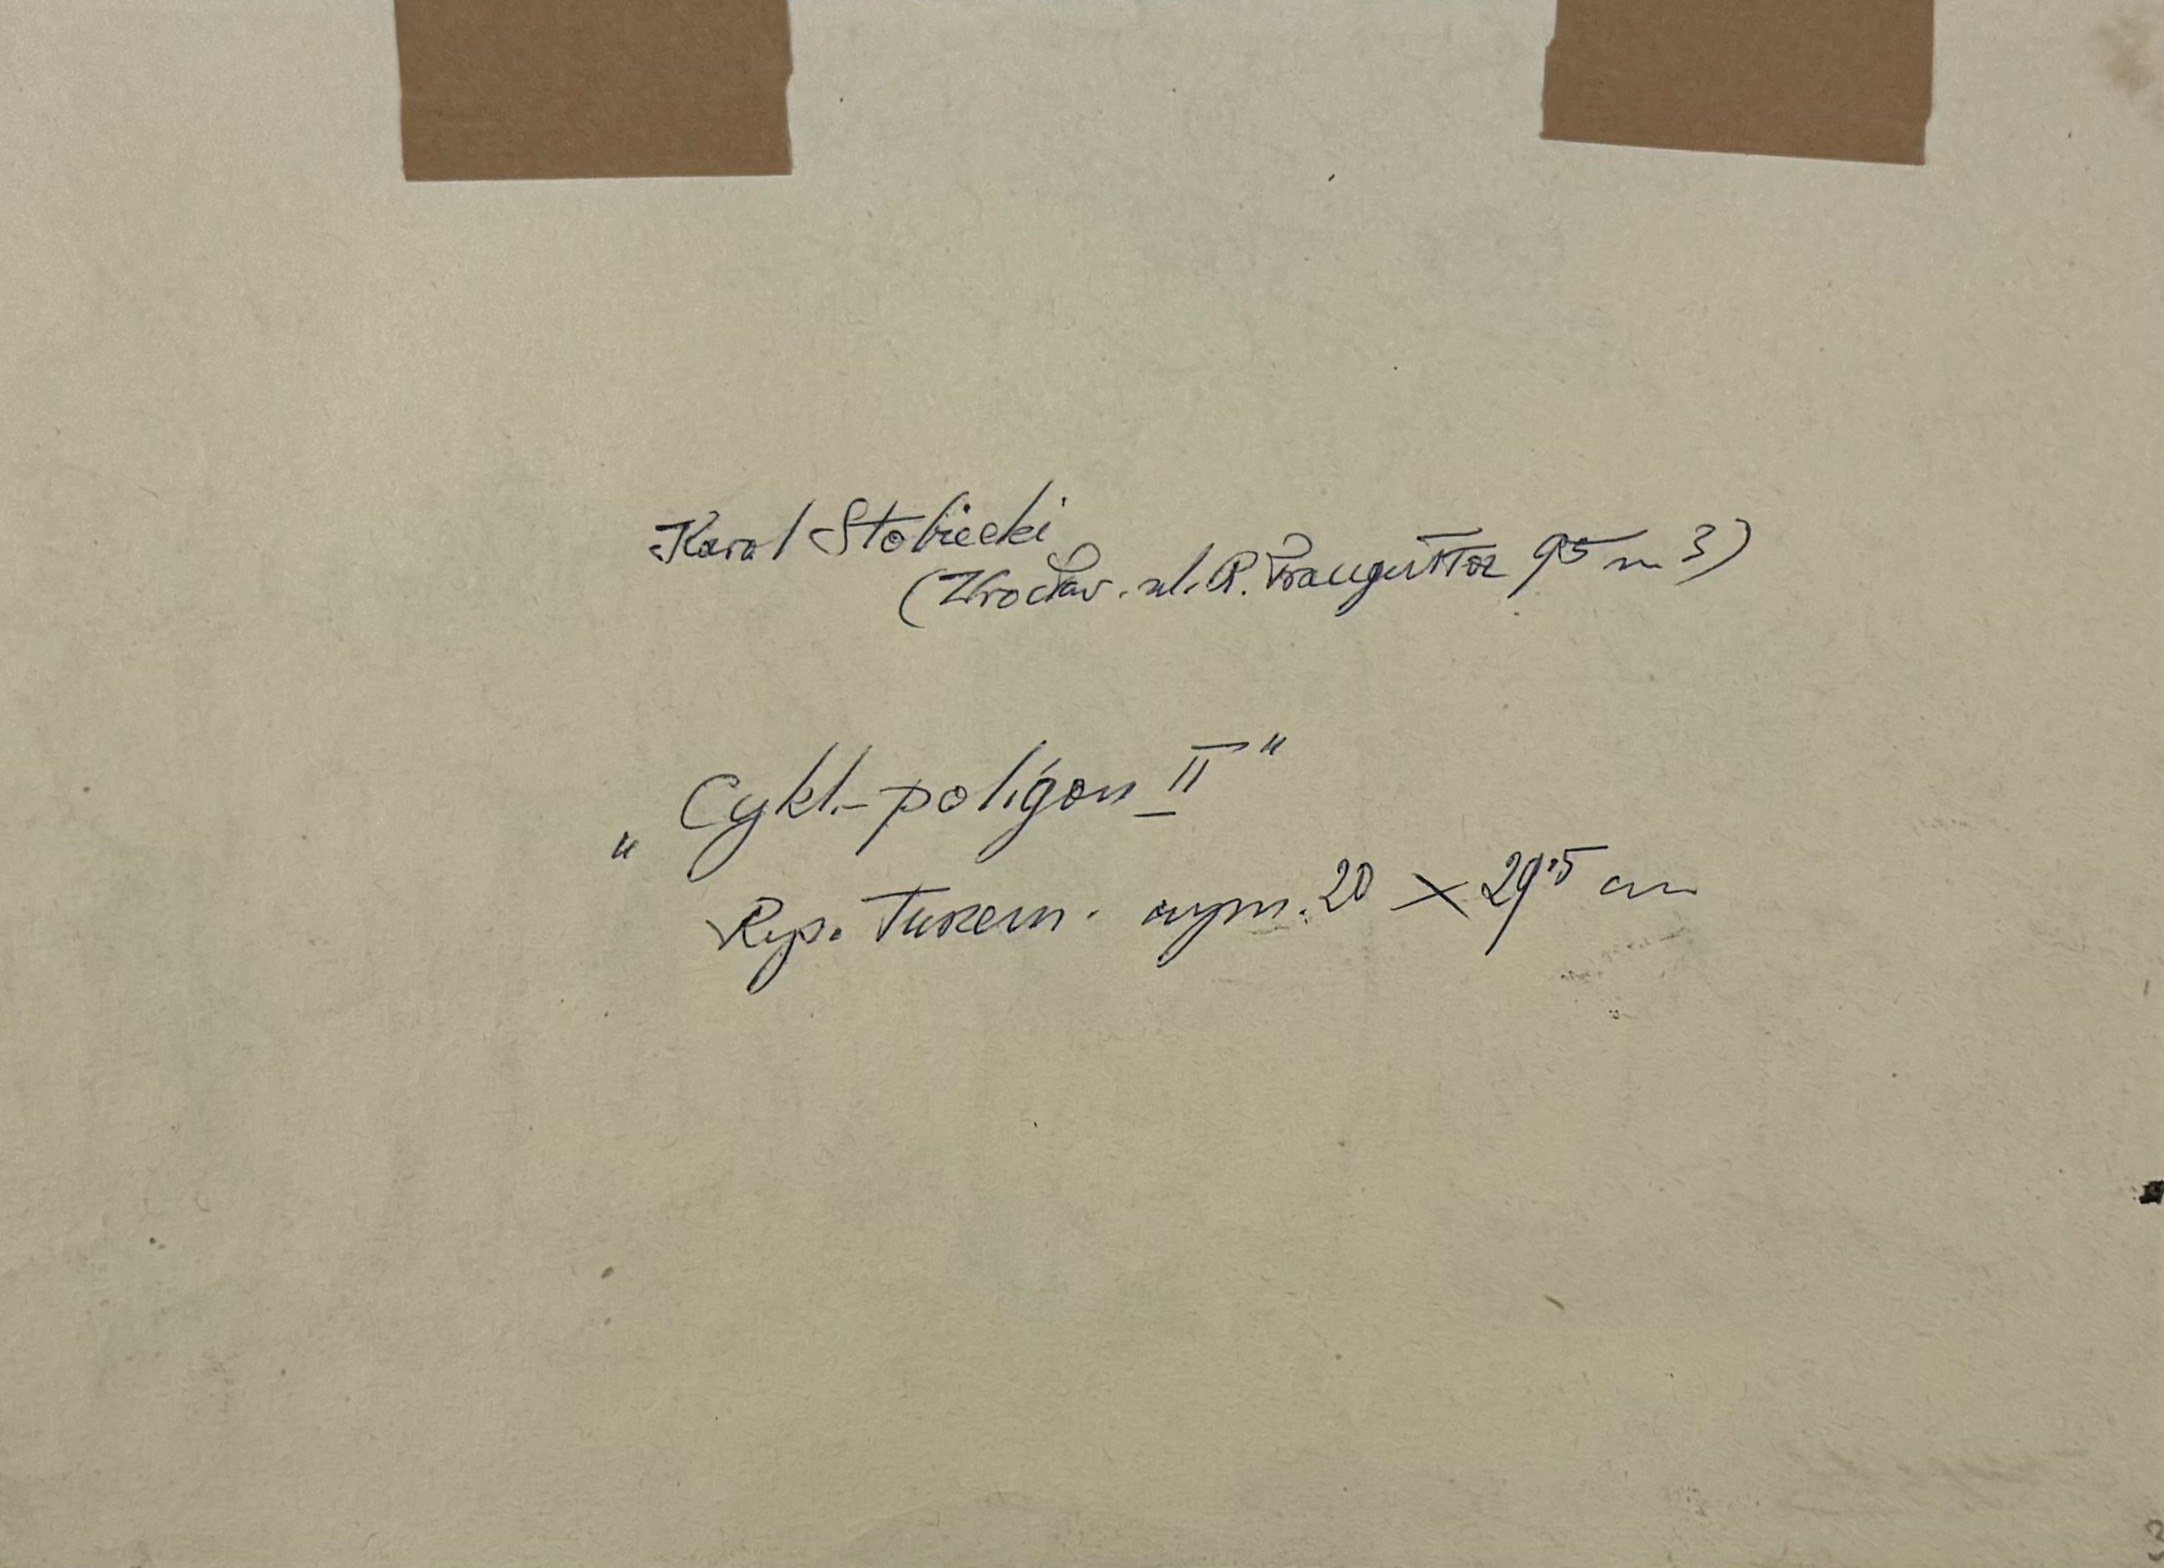 Karol Stobiecki
(Wrocław. ul. R. Traugutta 95 m 3)
„Cykl.-poligon II"
Rys. Tuszem. wym. 20 X 29,5 cm